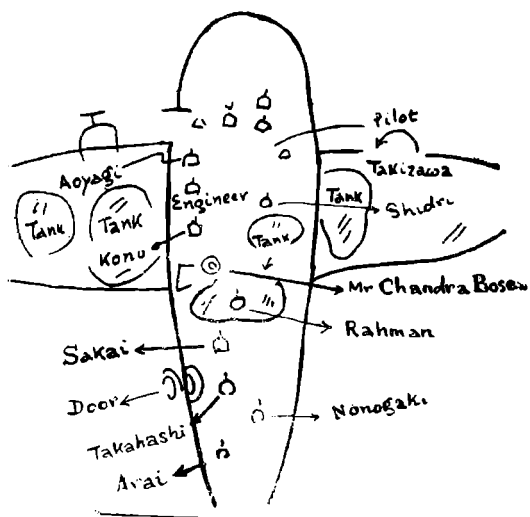 Pilot
Takizawa
Aoyagi
Engineer
Tank
Tank
Tank
Tank
Shidri
Konu
Mr Chandra Bose
Rahman
Sakai
Door
Nonogaki
Takahashi
Arai